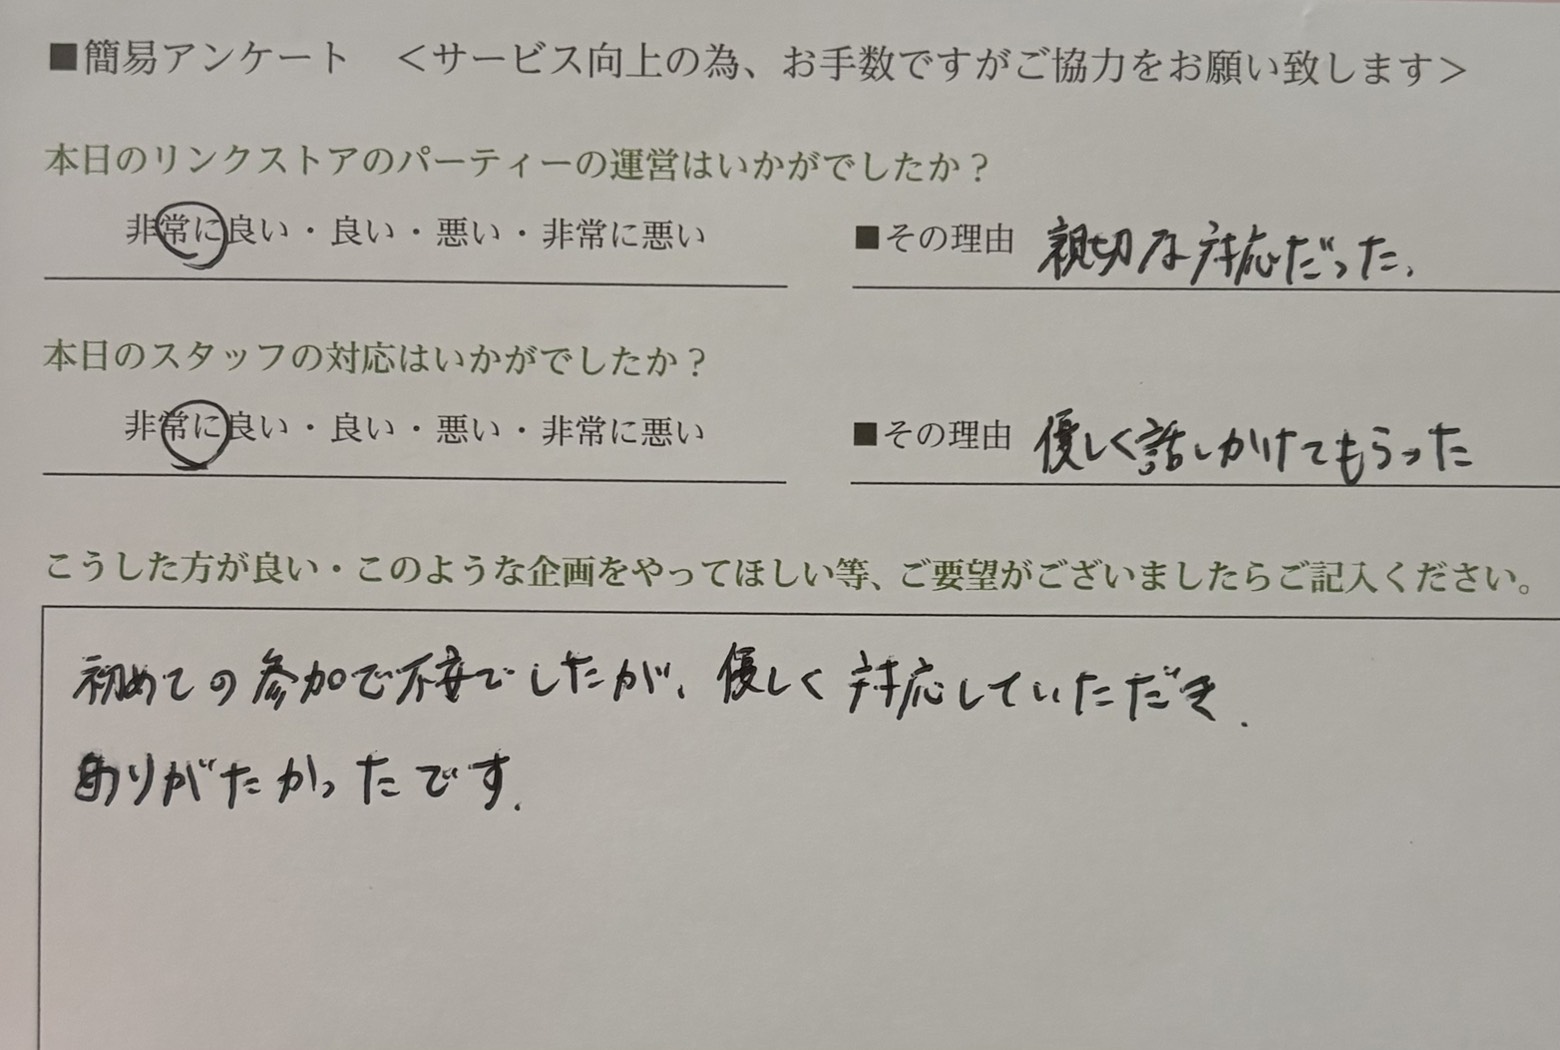 ■簡易アンケート ＜サービス向上の為、お手数ですがご協力をお願い致します＞
本日のリンクストアのパーティーの運営はいかがでしたか？
非常に良い・良い・悪い・非常に悪い ■その理由 親切な対応だった。
本日のスタッフの対応はいかがでしたか？
非常に良い・良い・悪い・非常に悪い ■その理由 優しく話しかけてもらった
こうした方が良い・このような企画をやってほしい等、ご要望がございましたらご記入ください。
初めての参加で不安でしたが、優しく対応していただき、
ありがたかったです。